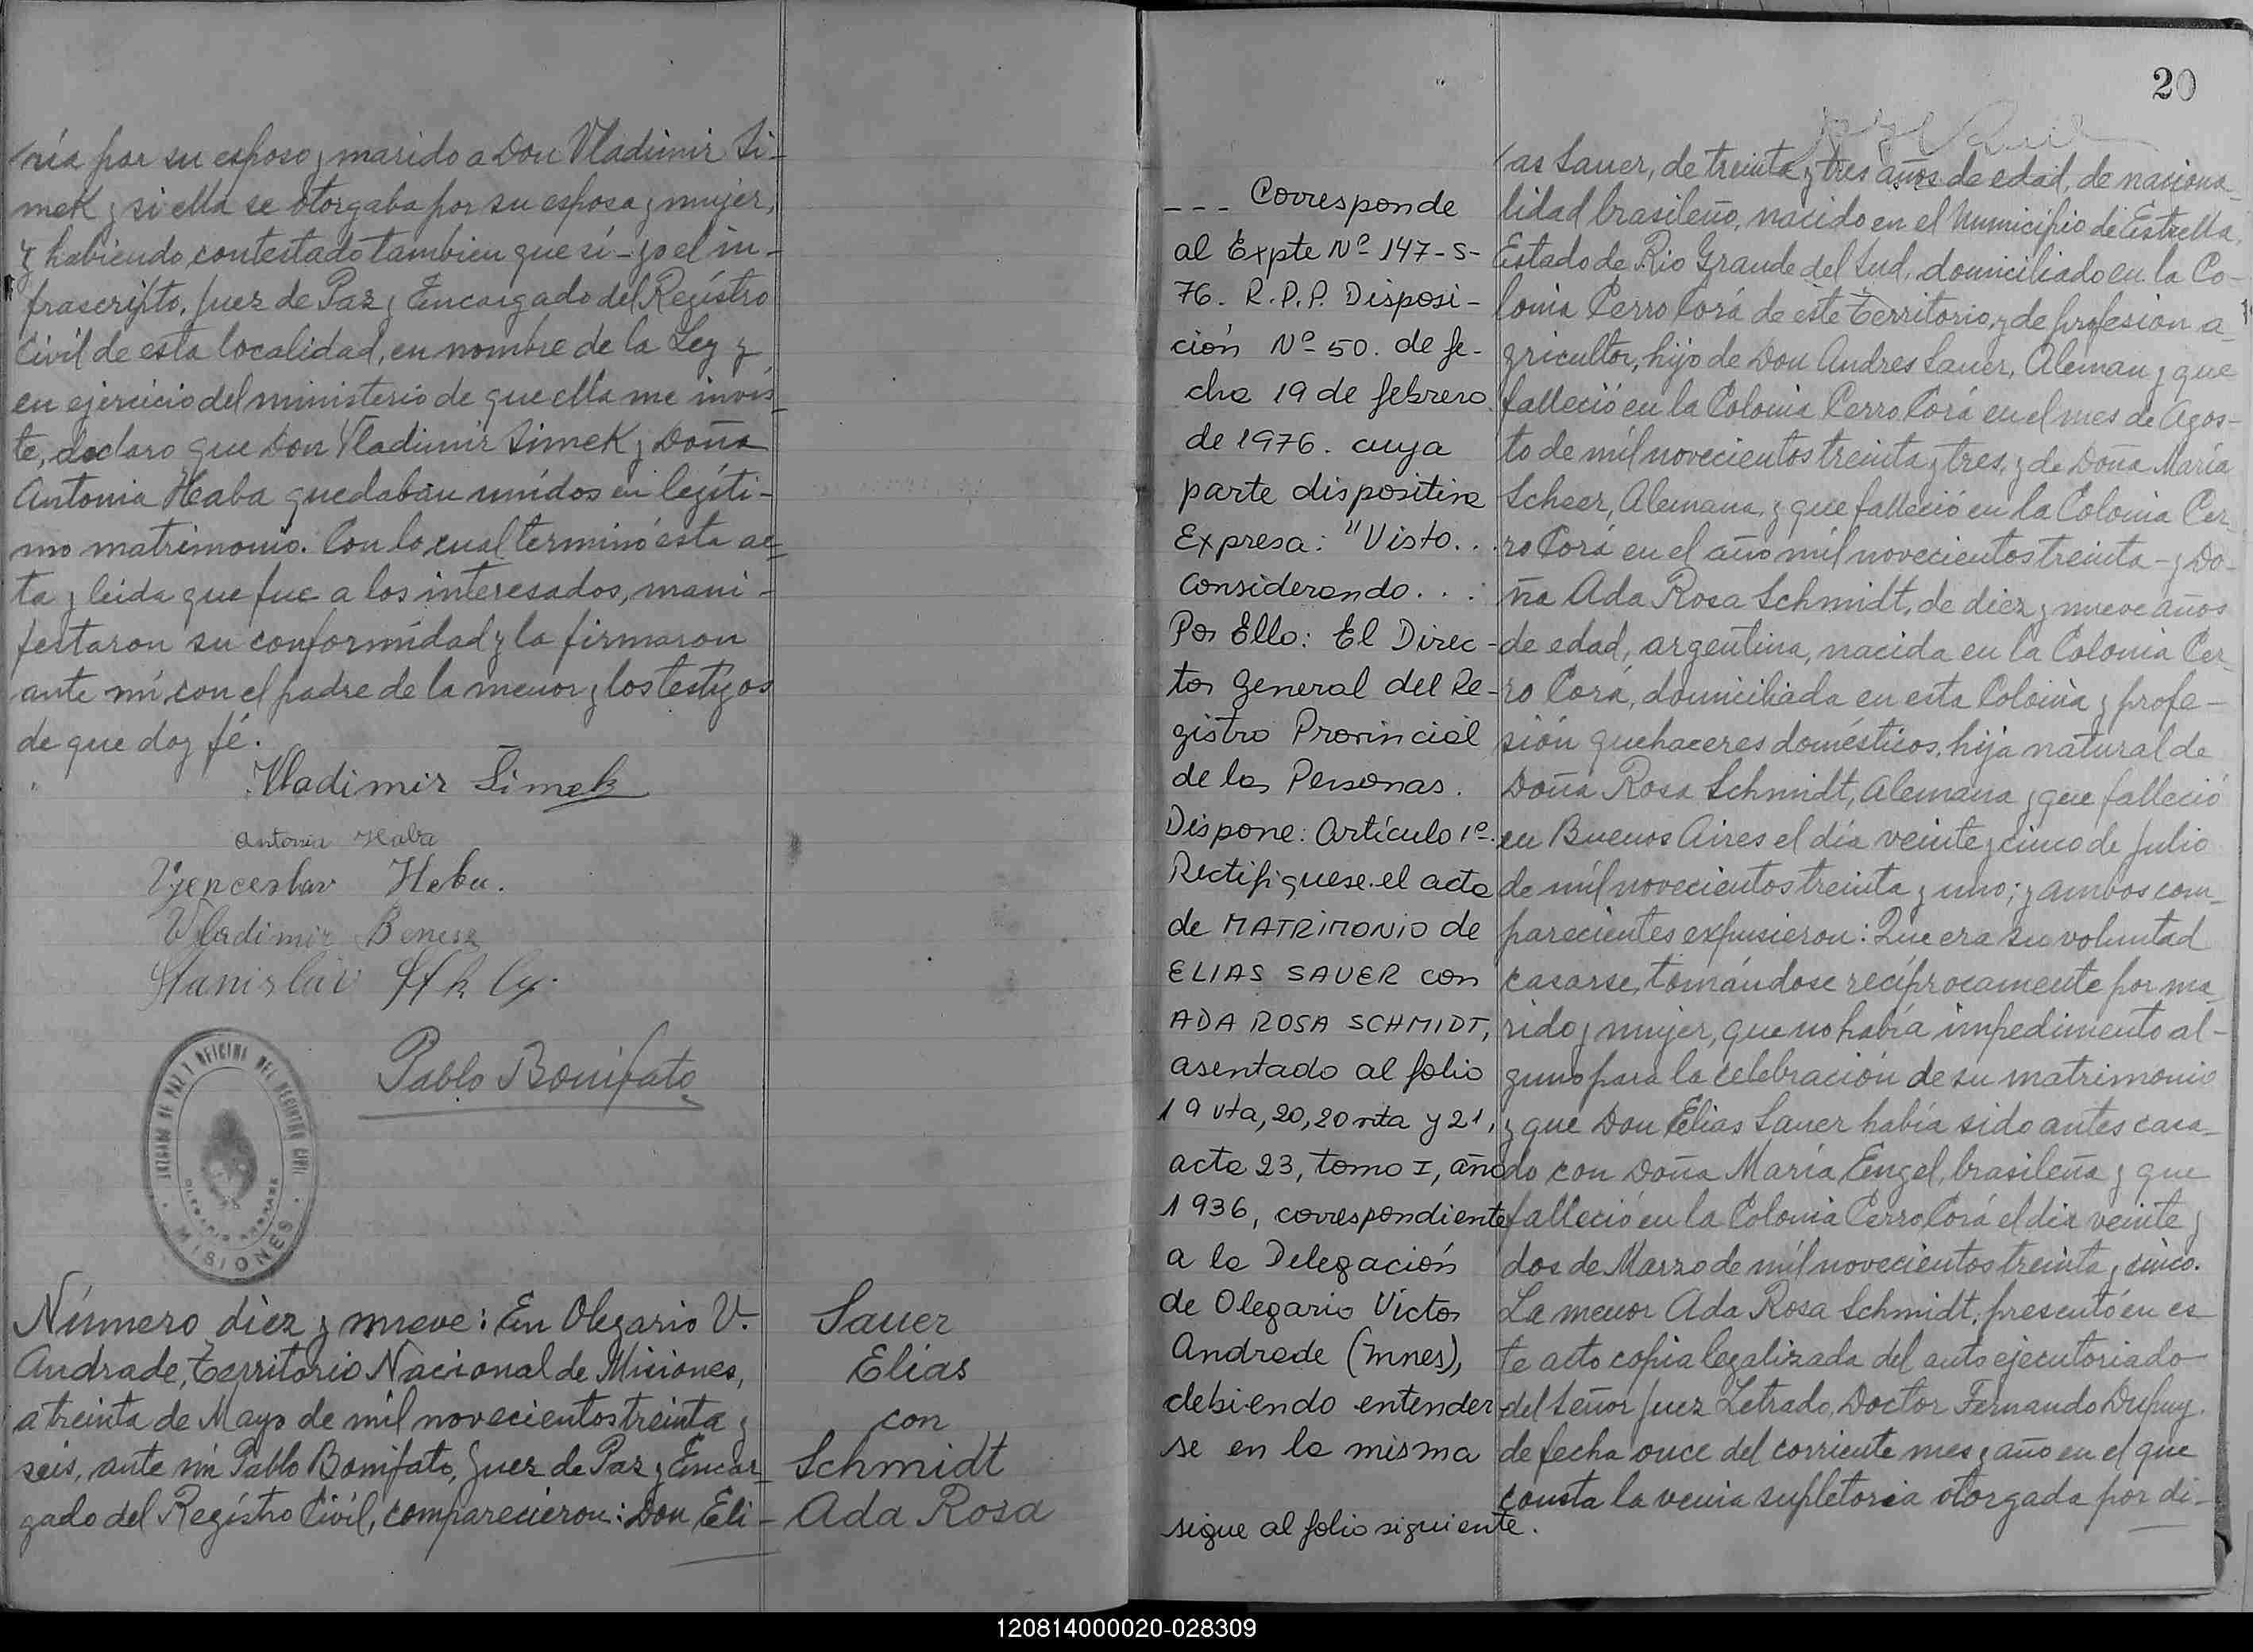 ría por su esposo y marido a Don Vladimir Si-
mek y si ella se otorgaba por su esposa y mujer,
y habiendo contestado tambien que sí - yo el in-
frascripto, Juez de Paz y Encargado del Regístro
Civil de esta localidad, en nombre de la Ley y
en ejercicio del ministerio de que ella me invis-
te, declaro que Don Vladimir Simek y Doña
Antonia Heaba quedaban unídos en legíti-
mo matrimonio. Con lo cual terminó esta ac-
ta y leida que fue a los interesados, mani-
festaron su conformídad y la firmaron
ante mí con el padre de la menor y los testígos
de que doy fé.
Vladimir Simek
Antonia Haba
Heba.
Vladimir Benesz
Stanislav
Pablo Bonifato
JUZGADO DE PAZ Y OFICINA DEL REGISTRO CIVIL
OLEGARIO ANDRADE
MISIONES
Número diez y nueve: En Olegario V.
Andrade, Territorio Nacional de Misiones,
a treinta de Mayo de mil novecientos treinta y
seis, ante mí Pablo Bonifato, Juez de Paz y Encar-
gado del Regístro Civíl, comparecieron: Don Eli-
Sauer
Elias
con
Schmidt
Ada Rosa
--- Corresponde
al Expte Nº 147-S-
76. R.P.P. Disposi-
ción Nº 50. de fe-
cha 19 de febrero
de 1976. cuya
parte dispositiva
Expresa: "Visto...
Considerando...:
Por Ello: El Direc-
tor General del Re-
gistro Provincial
de las Personas.
Dispone: Artículo 1º.
Rectifiquese el acta
de MATRIMONIO de
ELIAS SAUER con
ADA ROSA SCHMIDT,
asentado al folio
19 vta, 20, 20 vta y 21,
acta 23, tomo I, año
1936, correspondiente
a la Delegación
de Olegario Víctor
Andrade (Mnes),
debiendo entender-
se en la misma
sigue al folio siguiente.
20
as Sauer, de treinta y tres años de edad, de naciona-
lidad brasileño, nacido en el Municipio de Estrella,
Estado de Rio Grande del Sud, domiciliado en la Co-
lonia Cerro Corá de este Territorio, y de profesion a-
gricultor, hijo de Don Andres Sauer, Aleman y que
falleció en la Colonia Cerro Corá en el mes de Agos-
to de míl novecientos treinta y tres, y de Doña María
Scheer, Alemana, y que falleció en la Colonia Cer-
ro Corá en el año míl novecientos treinta - y Do-
ña Ada Rosa Schmidt, de diez y nueve años
de edad, argentina, nacida en la Colonia Cer-
ro Corá, domiciliada en esta Colonia y profe-
sión quehaceres domésticos, hija natural de
Doña Rosa Schmidt, Alemana y que falleció
en Buenos Aires el día veinte y cinco de Julio
de míl novecientos treinta y uno; y ambos com-
parecientes expusieron: Que era su voluntad
casarse, tomándose recíprocamente por ma-
rido y mujer, que no había impedimento al-
guno para la celebración de su matrimonio
y que Don Elias Sauer había sido antes casa-
do con Doña María Engel, brasileña y que
falleció en la Colonia Cerro Corá el día veinte y
dos de Marzo de míl novecientos treinta y cinco.
La menor Ada Rosa Schmidt, presentó en es-
te acto copia legalizada del auto ejecutoriado
del Señor Juez Letrado, Doctor Fernando Dupuy
de fecha once del corriente mes y año en el que
consta la venia supletoria otorgada por di-
120814000020-028309